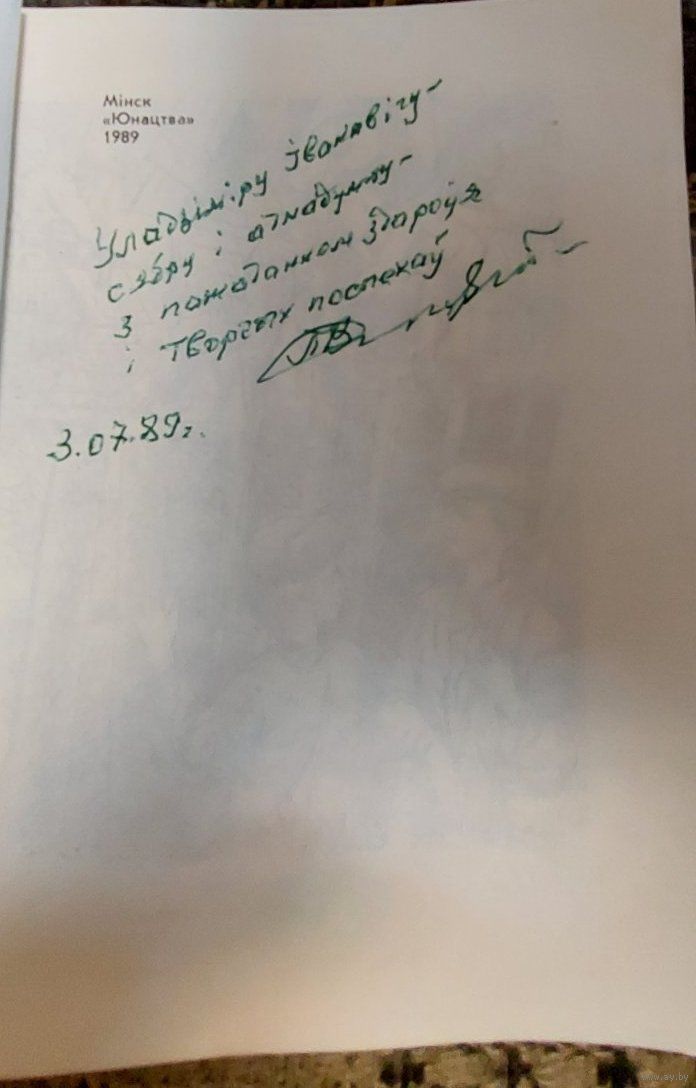 Мінск
«Юнацтва»
1989
Уладзіміру Іванавічу –
сябру і аднадумцу –
з пажаданнем здароўя
і творчых поспехаў
3.07.89г.
www.ay.by